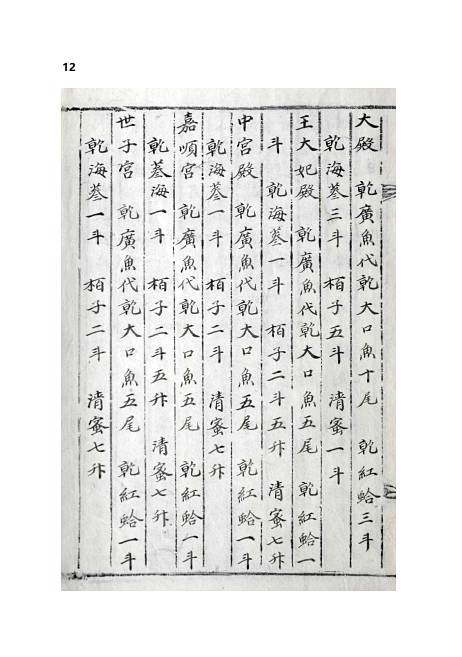 12
大殿 乾廣魚代乾大口魚十尾 乾紅蛤三斗
乾海蔘三斗 栢子五斗 清蜜一斗
王大妃殿 乾廣魚代乾大口魚五尾 乾紅蛤一
斗 乾海蔘一斗 栢子二斗五升 清蜜七升
中宮殿 乾廣魚代乾大口魚五尾 乾紅蛤一斗
乾海蔘一斗 栢子二斗 清蜜七升
嘉順宮 乾廣魚代乾大口魚五尾 乾紅蛤一斗
乾蔘海一斗 栢子二斗五升 清蜜七升
世子宮 乾廣魚代乾大口魚五尾 乾紅蛤一斗
乾海蔘一斗 栢子二斗 清蜜七升